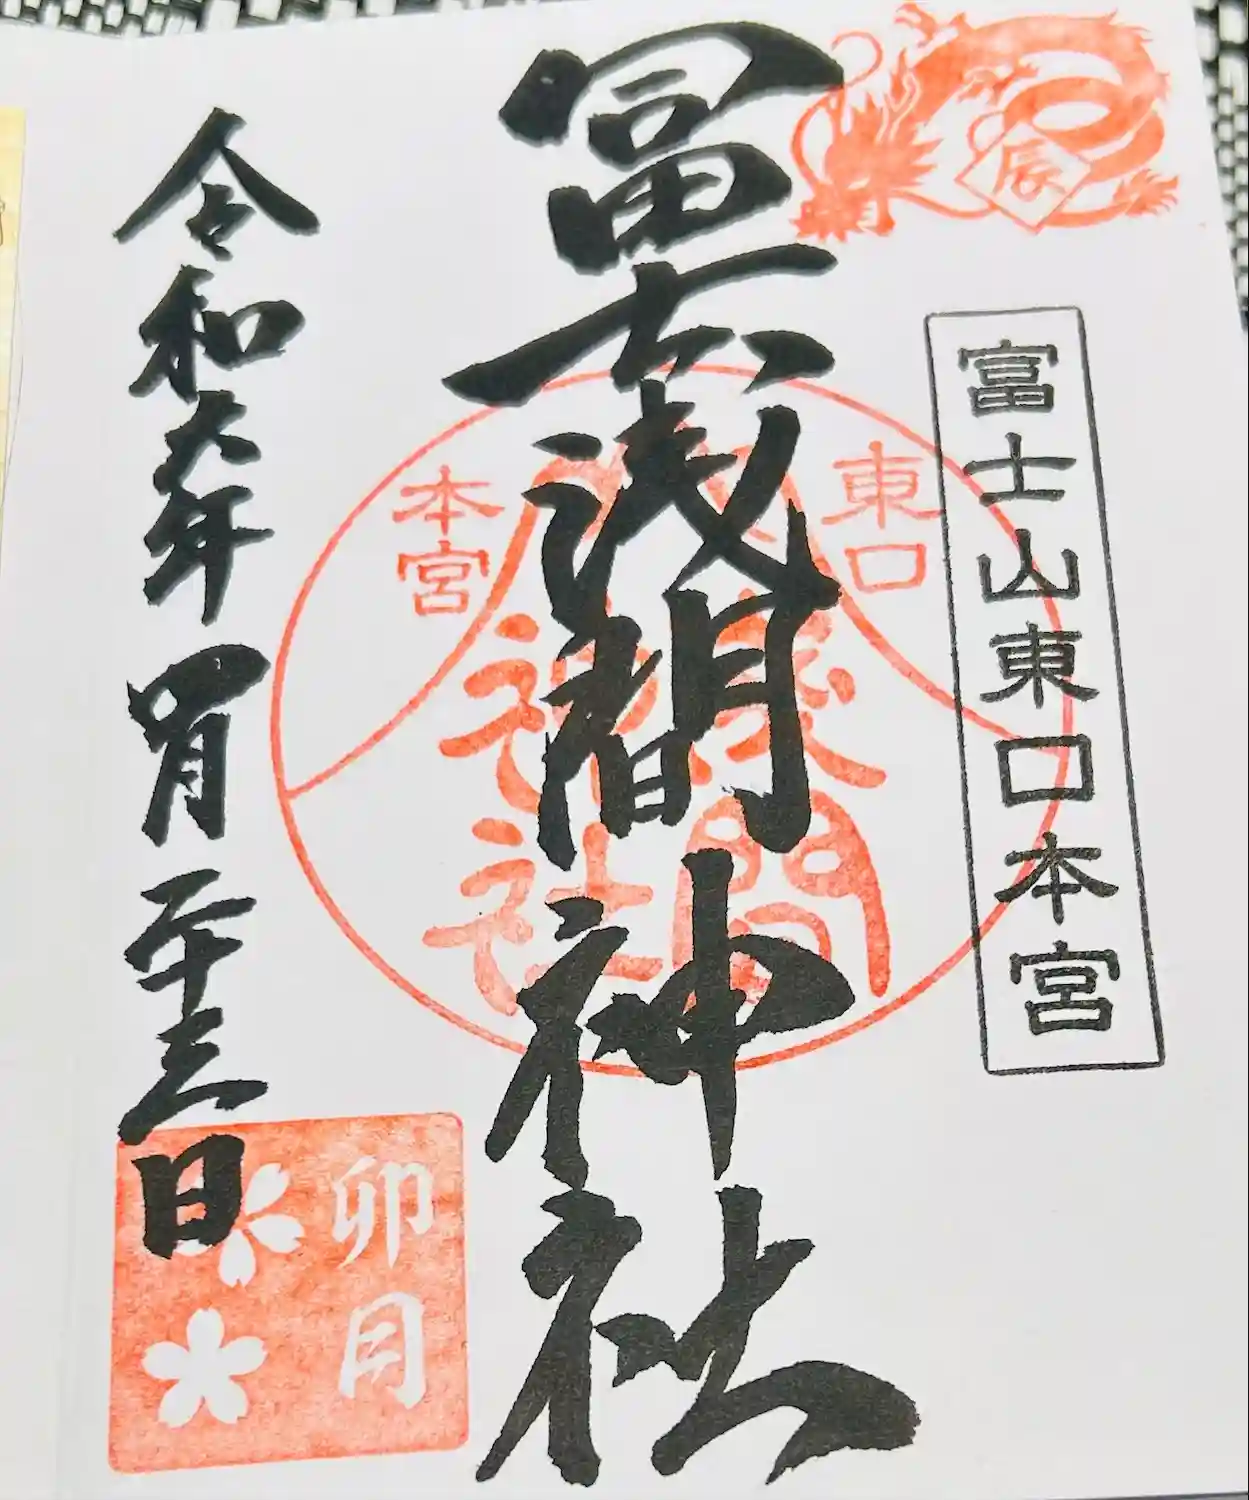 辰
富士山東口本宮
冨士浅間神社
東口
本宮
浅間
神社
令和六年四月二十三日
卯月